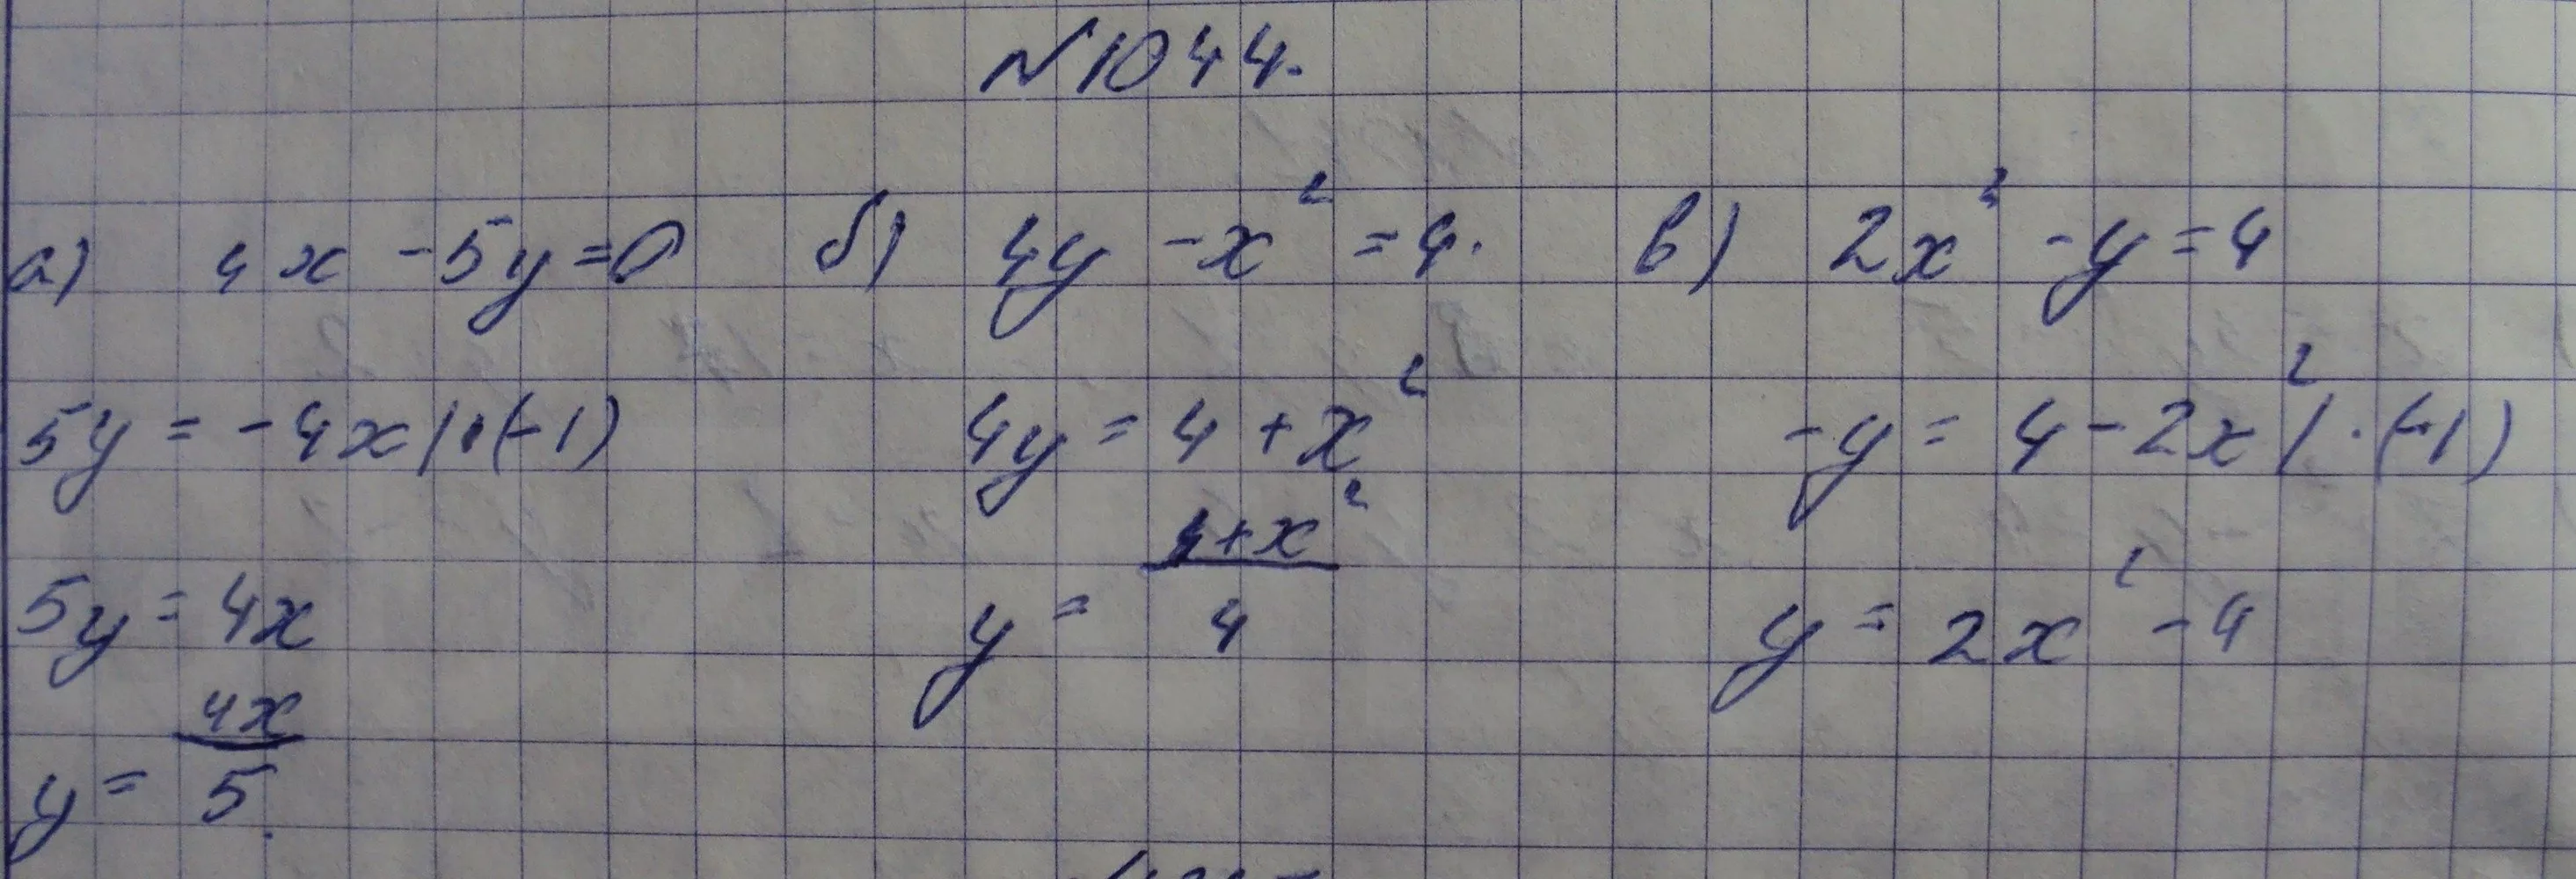 №1044.
а) 4x - 5y = 0
5y = -4x | · (-1)
5y = 4x
y = 4x/5.
б) 4y - x² = 4.
4y = 4 + x²
y = 4+x²/4
в) 2x² - y = 4
-y = 4 - 2x² | · (-1)
y = 2x² - 4